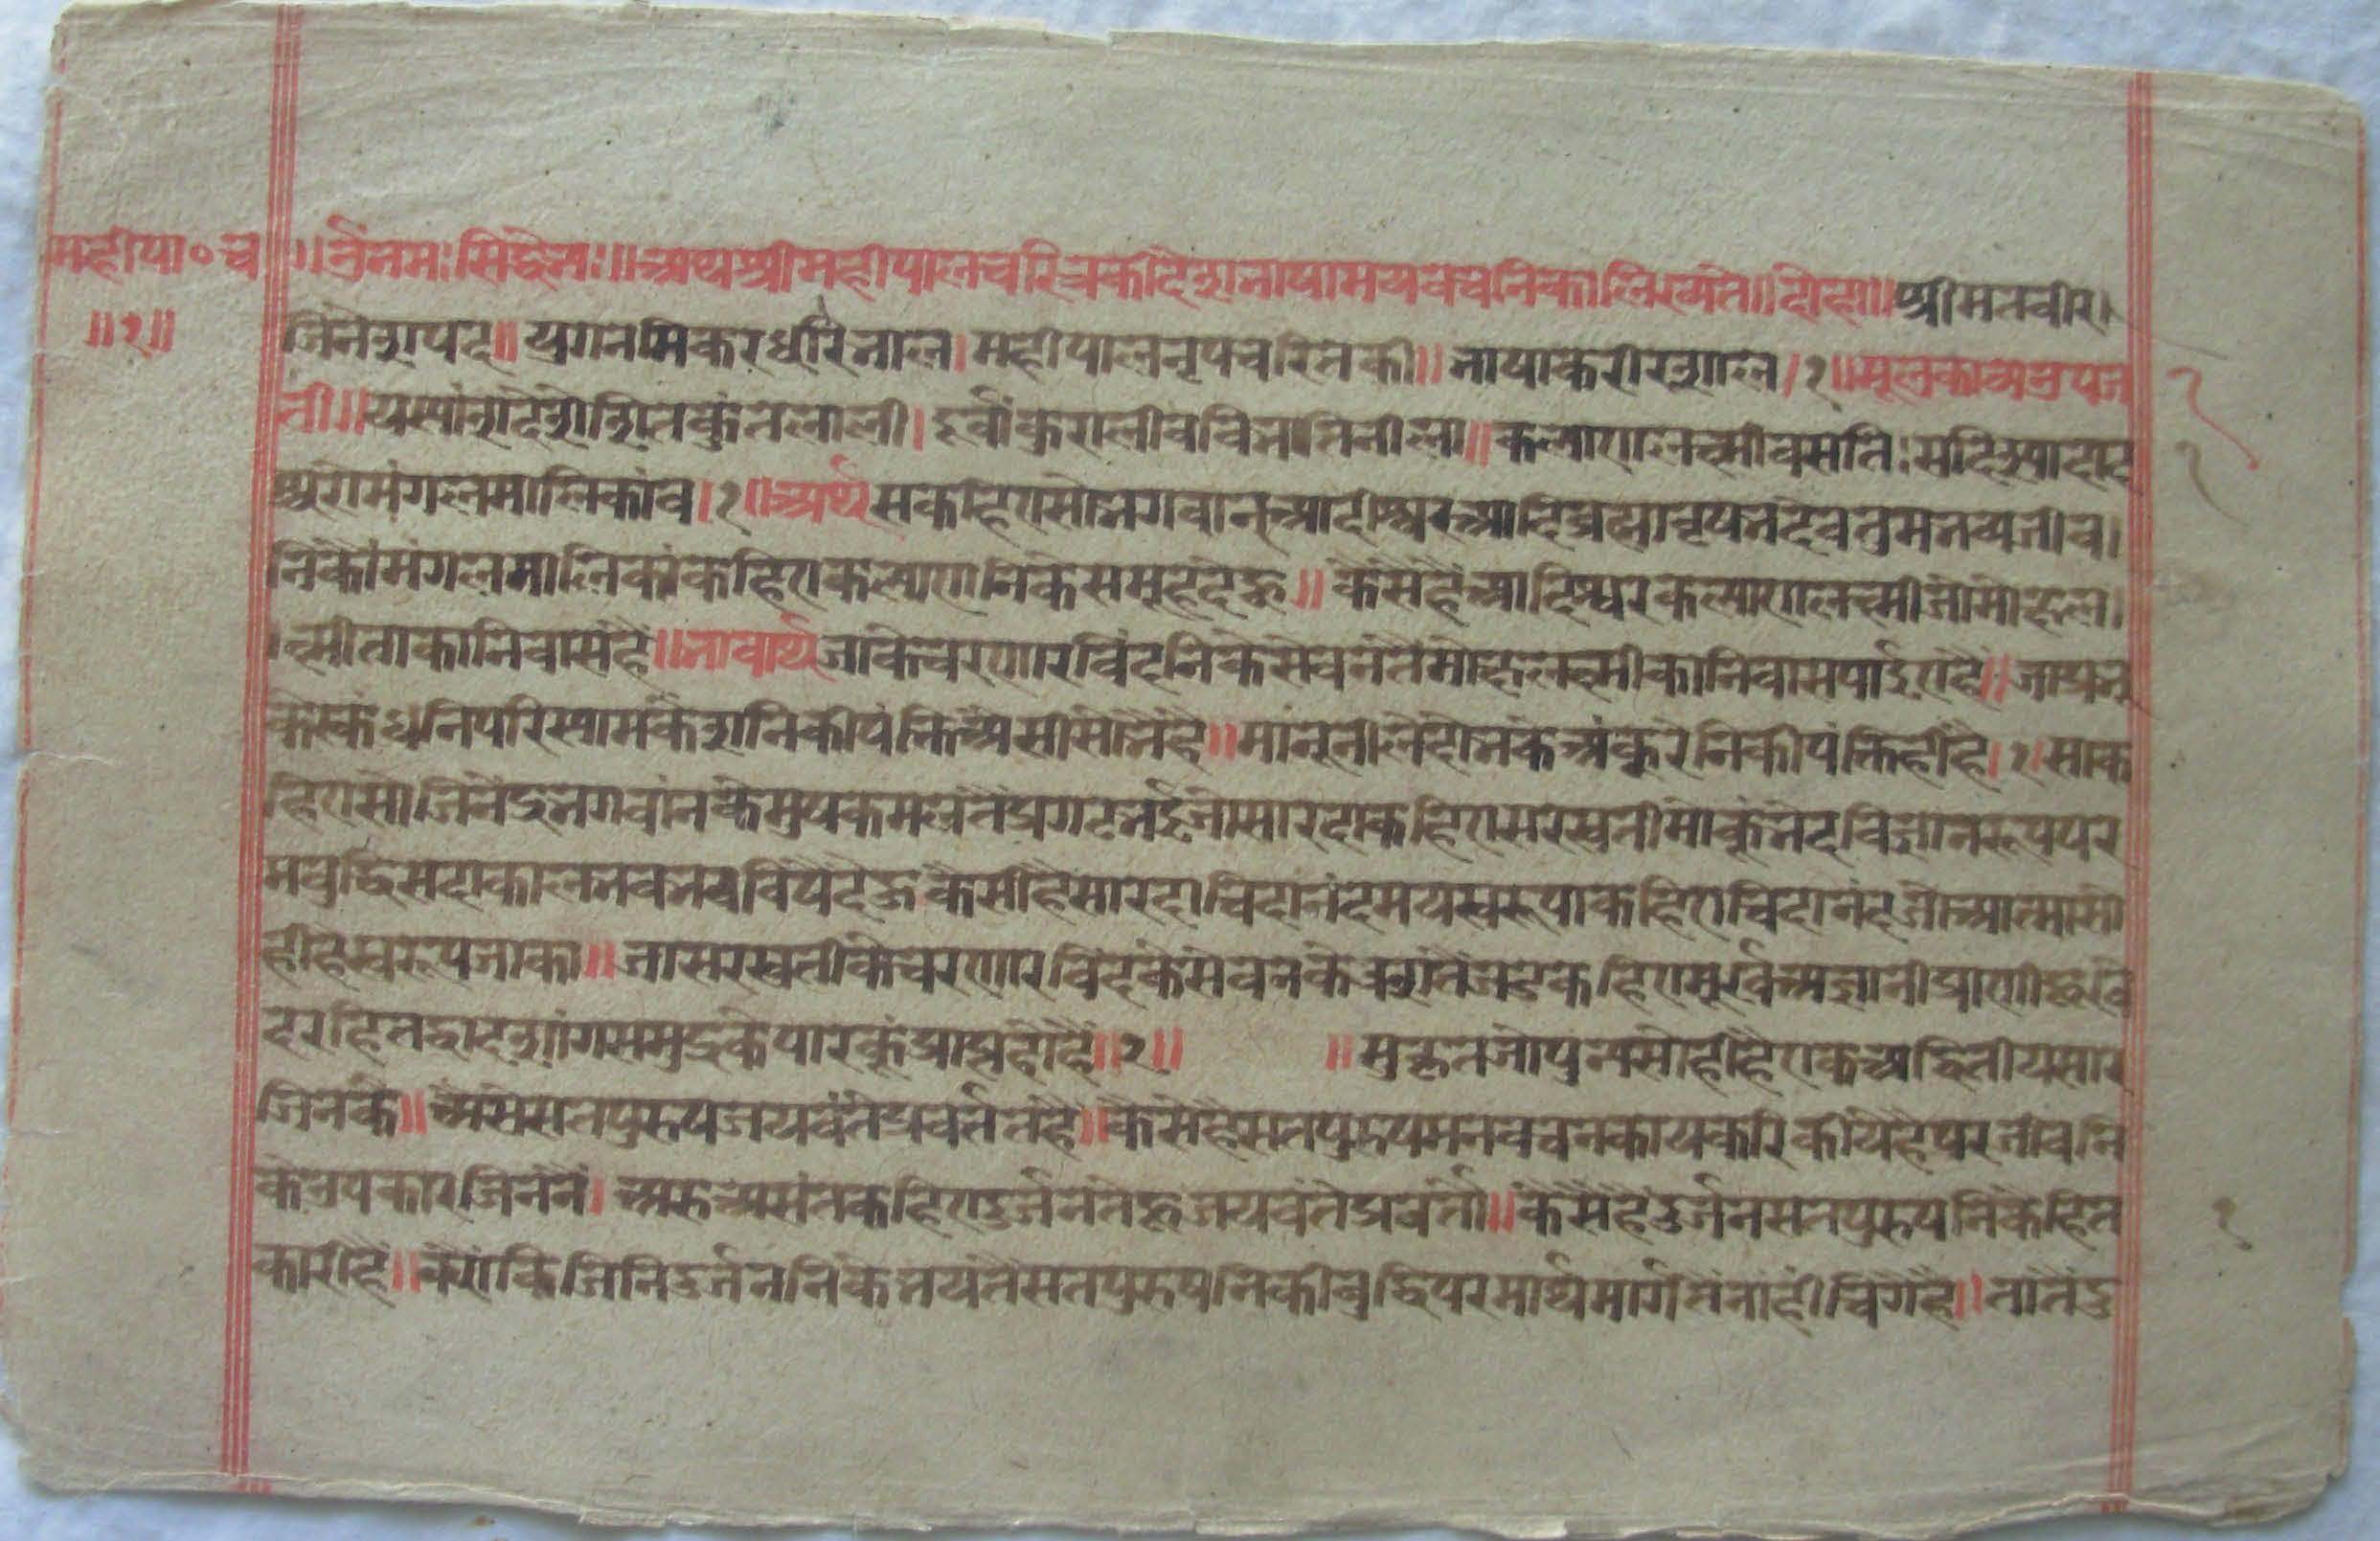 महीपा०च
॥१॥
॥ॐनमः सिद्धेभ्यः॥ अथ श्रीमहीपालचरित्रकीदेशभाषामयवचनिका लिख्यते॥ दोहा॥ श्रीमतवीर।
जिनेशपद॥ युगनमिकरधरिभाल। महीपालनृपचरितकी॥ भाषाकरौरशाल।१॥ मूलकाव्यउपजा
ती॥ यस्यांशदेशेशितकुंतलाली। दूर्वांकुरालीवविभातिनीला॥ कल्याणलक्ष्मीवसतिः सदिश्यादाद
श्वरोमंगलमालिकांव।१॥ अर्थ सकहिएसोभगवान्आदीश्वरआदिब्रह्मावृषभदेवतुमभव्यजीव।
निकौंमंगलमालिकांकहिएकल्याणनिकेसमूहदेऊ॥ कैसेहैंआदिश्वरकल्याणलक्ष्मीजोमोक्षल।
।क्ष्मीताकानिवासहै॥ भावार्थ जाकेचरणारविंदनिकेसेवनतैंमोक्षलक्ष्मीकानिवासपाईएहै॥ जाप्रभू
केस्कंधनिपरिस्यामकेशनिकीपंक्तिअैसीसोभैहै॥ मांनूनीलेदोभकेअंकुरेनिकीपंक्तिहीहै।१। साक
हिएसोजिनेंद्रभगवांनकेमुषकमलतैंप्रगटभईजोसारदाकहिएसरस्वतीमोकूंभेदविज्ञानरूपपर
मबुद्धिसदाकालभवभवविषैदेऊ कैसीहैसारदा चिदानंदमयस्वरूपाकहिएचिदानंदजोआत्मासो
हीहैस्वरूपजाका॥ जासरस्वतीकेचरणारविंदकेसेवनकेवशतैंजडकहिएमूर्खअज्ञानीप्राणीहूखे
दरहितद्वादशांगसमुद्रकेपारकूंप्राप्तहोहै॥२॥ ॥सुकृतजोपुन्यसोहीहैएकअद्वितीयसार
जिनकै॥ अैसेसतपुरुषजयवंतेप्रवर्ततहै॥ कैसेहैसतपुरुषमनवचनकायकरिकीयेहैपरजीवनि
केउपकारजिननैं। अरुअसंतकहिएदुर्जनतेहूजयवंतेप्रवर्तो॥ कैसेहैदुर्जनसतपुरुषनिकेहित
कारीहै॥ क्योंकिजिनिदुर्जननिकेभयतैंसतपुरुषनिकीबुद्धिपरमार्थमार्गतैंनांहींचिगैहै॥ तातैंदु
१